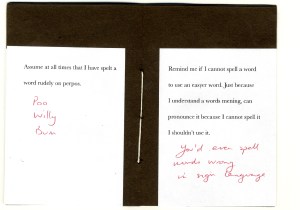 Assume at all times that I have spelt a
word rudely on perpos.
Poo
Willy
Bum
Remind me if I cannot spell a word
to use an eazyer word. Just because
I understand a words mening, can
pronounce it because I cannot spell it
I shouldn't use it.
You'd even spell
words wrong
in sign language